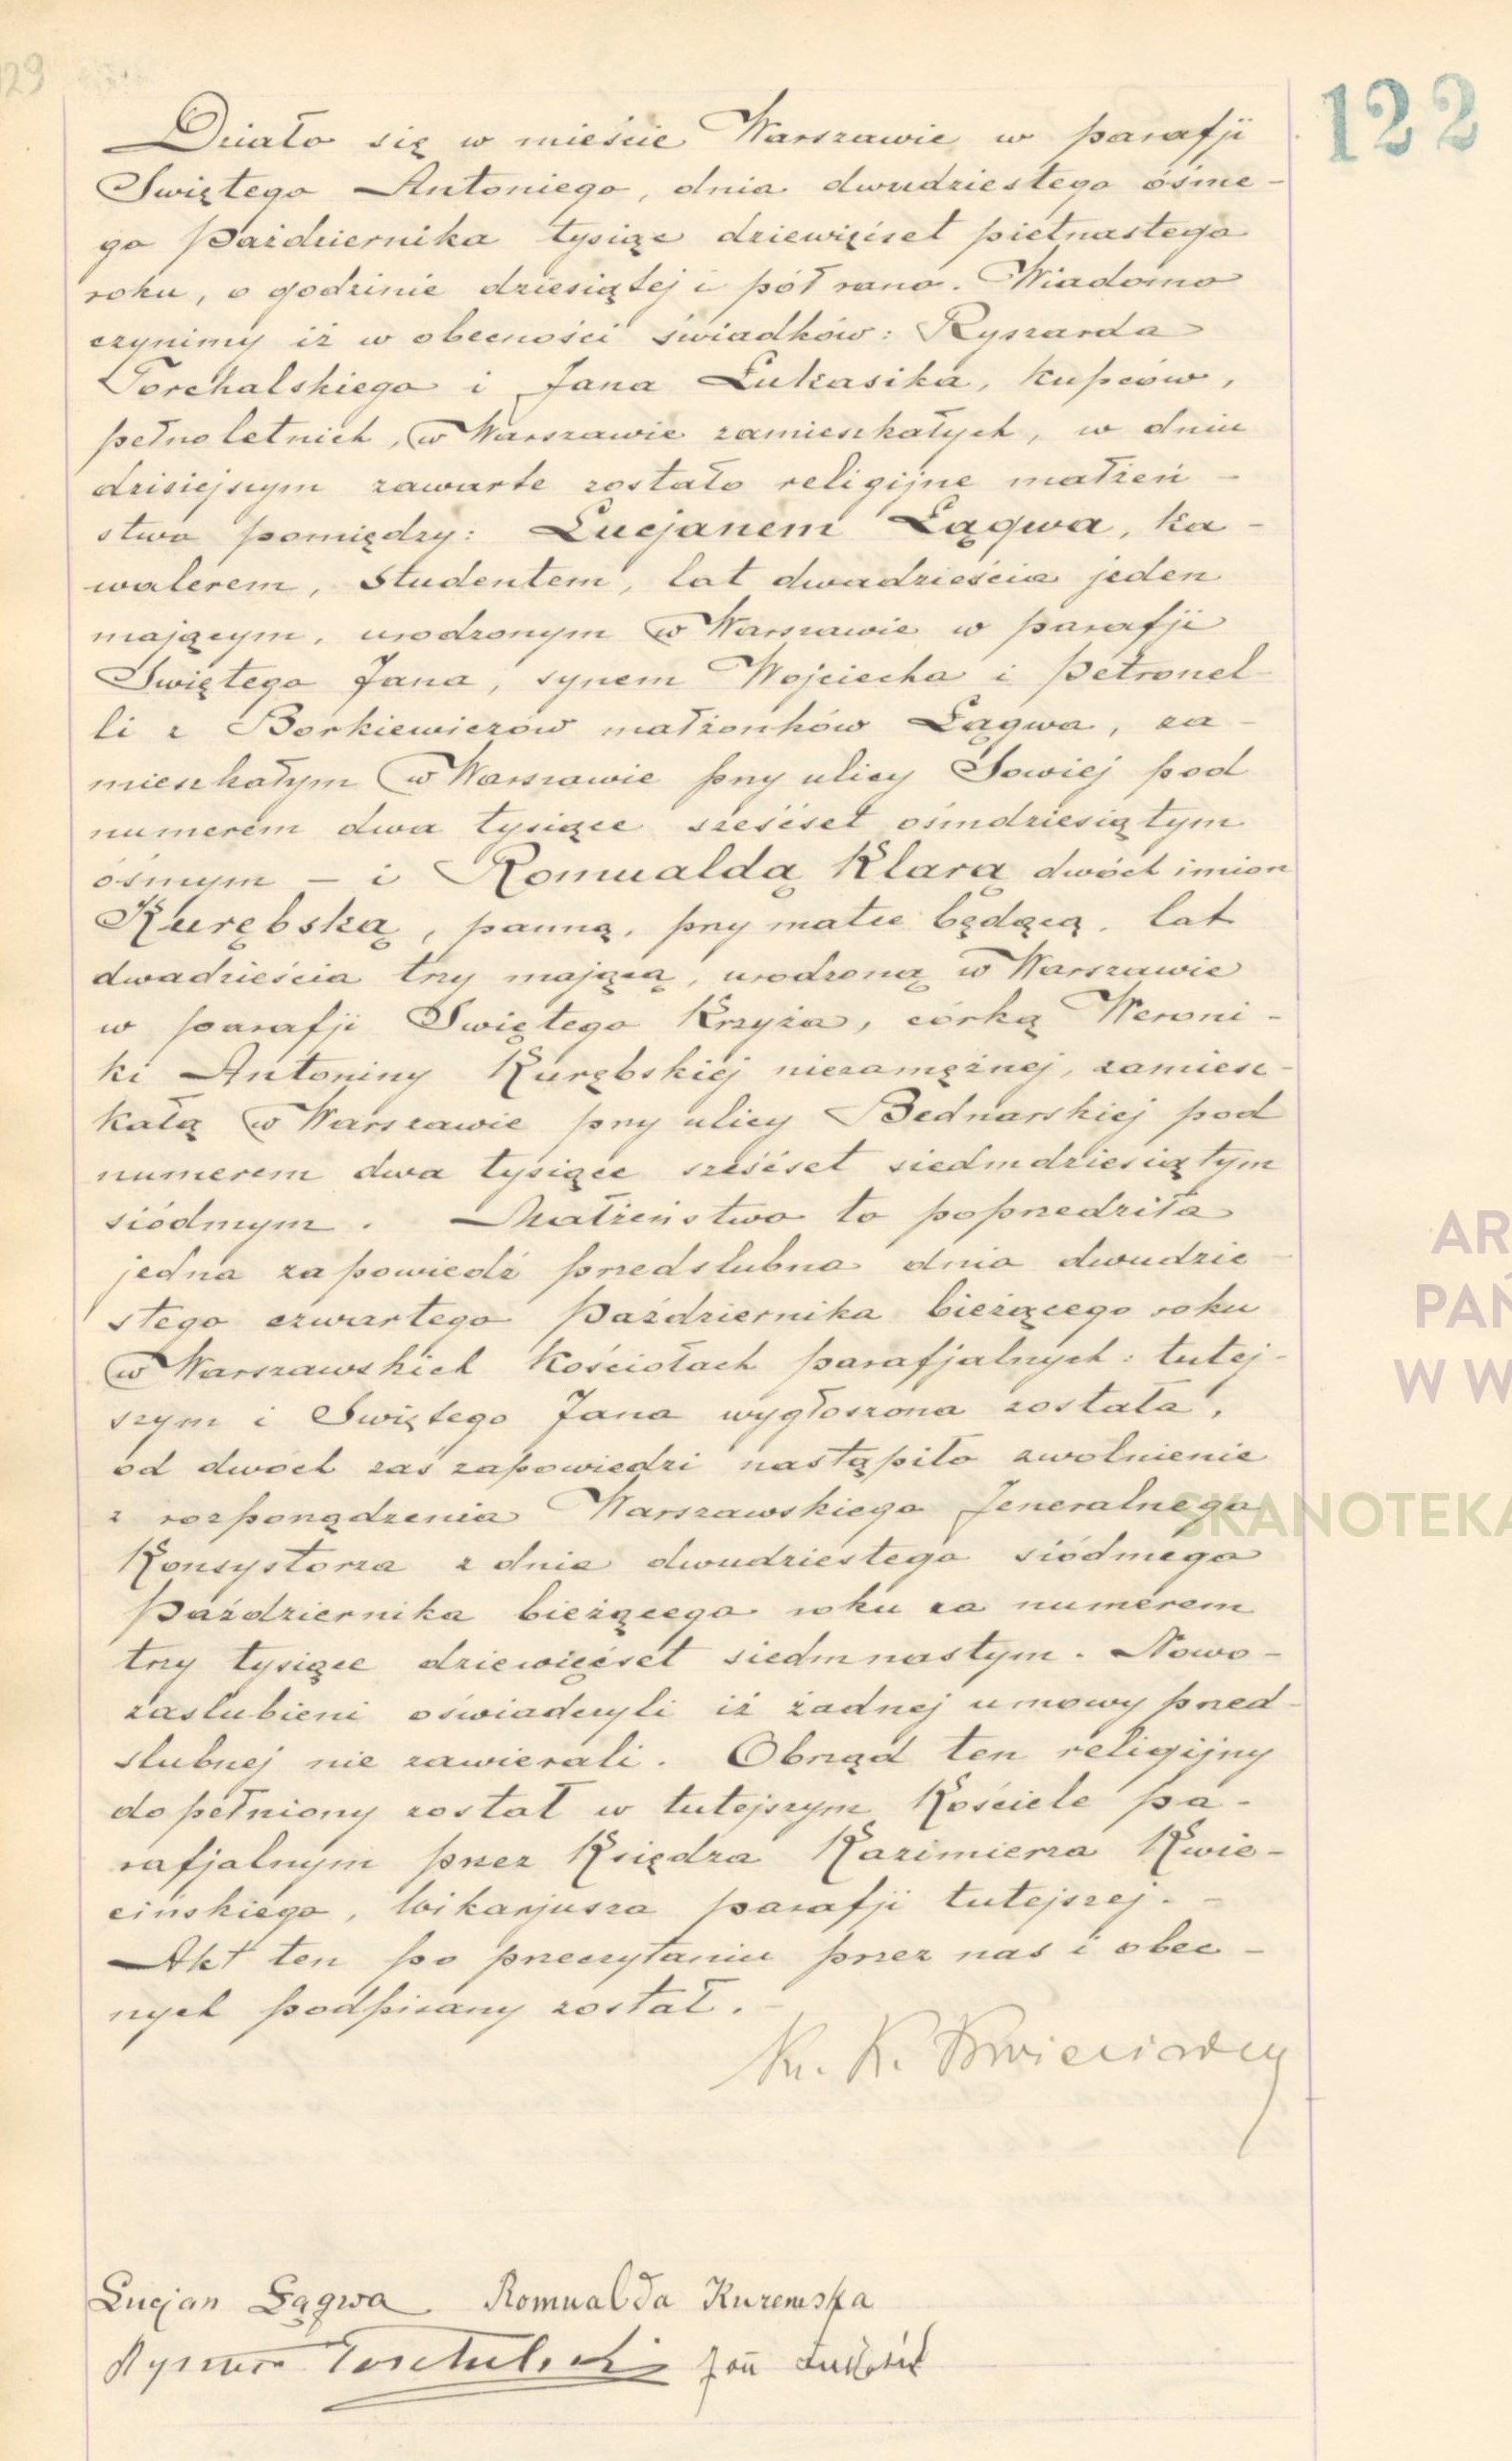 129
122
Działo się w mieście Warszawie w parafji
Świętego Antoniego, dnia dwudziestego ósme-
go Października tysiąc dziewięćset piętnastego
roku, o godzinie dziesiątej i pół rano. Wiadomo
czynimy iż w obecności świadków: Ryszarda
Torchalskiego i Jana Łukasika, kupców,
pełnoletnich, w Warszawie zamieszkałych, w dniu
dzisiejszym zawarte zostało religijne małżeń-
stwo pomiędzy: Lucjanem Łągwa, ka-
walerem, studentem, lat dwadzieścia jeden
mającym, urodzonym w Warszawie w parafji
Świętego Jana, synem Wojciecha i Petronel-
li z Borkiewiczów małżonków Łągwa, za-
mieszkałym w Warszawie przy ulicy Sowiej pod
numerem dwa tysiące sześćset ośmdziesiątym
ósmym – i Romualdą Klarą dwóch imion
Kurębską, panną, przy matce będącą, lat
dwadzieścia trzy mającą, urodzoną w Warszawie
w parafji Świętego Krzyża, córką Weroni-
ki Antoniny Kurębskiej niezamężnej, zamiesz-
kałą w Warszawie przy ulicy Bednarskiej pod
numerem dwa tysiące sześćset siedmdziesiątym
siódmym. Małżeństwo to poprzedziła
jedna zapowiedź przedślubna dnia dwudzie
stego czwartego Października bieżącego roku
w Warszawskich Kościołach parafjalnych: tutej-
szym i Świętego Jana wygłoszona została,
od dwóch zaś zapowiedzi nastąpiło zwolnienie
z rozporządzenia Warszawskiego Jeneralnego
Konsystorza z dnia dwudziestego siódmego
Października bieżącego roku za numerem
trzy tysiące dziewięćset siedmnastym. Nowo-
zaślubieni oświadczyli iż żadnej umowy przed-
ślubnej nie zawierali. Obrząd ten religijny
dopełniony został w tutejszym Kościele pa-
rafjalnym przez Księdza Kazimierza Kwie-
cińskiego, Wikarjusza parafji tutejszej. -
Akt ten po przeczytaniu przez nas i obec-
nych podpisany został. -
Ks. K. Kwieciński
Lucjan Łągwa Romualda Kurembska
Ryszard Torchalski Jan Łukasik
AR
PAŃ
W W
SKANOTEKA